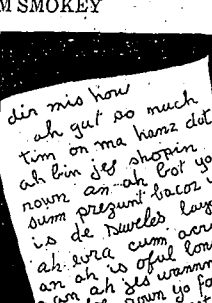 M SMOKEY
dir mis how
ah gut so much
tim on ma hanz dat
ah bin jes shopin
roun an ah bot yo
sum prezunt bacoz
is de sweles
ah evra cum
an ah is oful lon
an ah jes wannn
roun yo fo